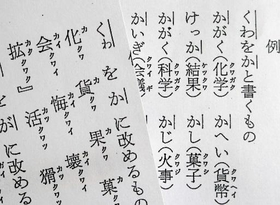 例
くわをかと書くもの
かがく(化学) かへい(貨幣)
けっか(結果) かし(菓子)
かがく(科学) かじ(火事)
かいぎ(会議)
くわをかに改めるもの
化 貨 果 菓
会 悔 壊
拡』 活 猾
をがに改める